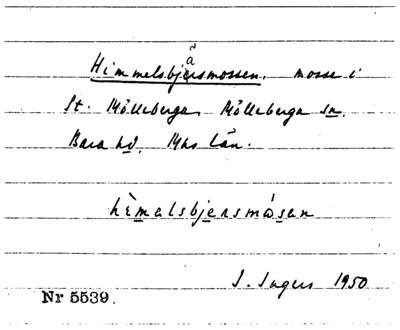 Himmelsbjersmossen, mosse i
St. Mölleberga, Mölleberga sn.
Bara hd. Mhs län.
hèmalsbjersmåsan
S. Ingers 1950
Nr 5539.